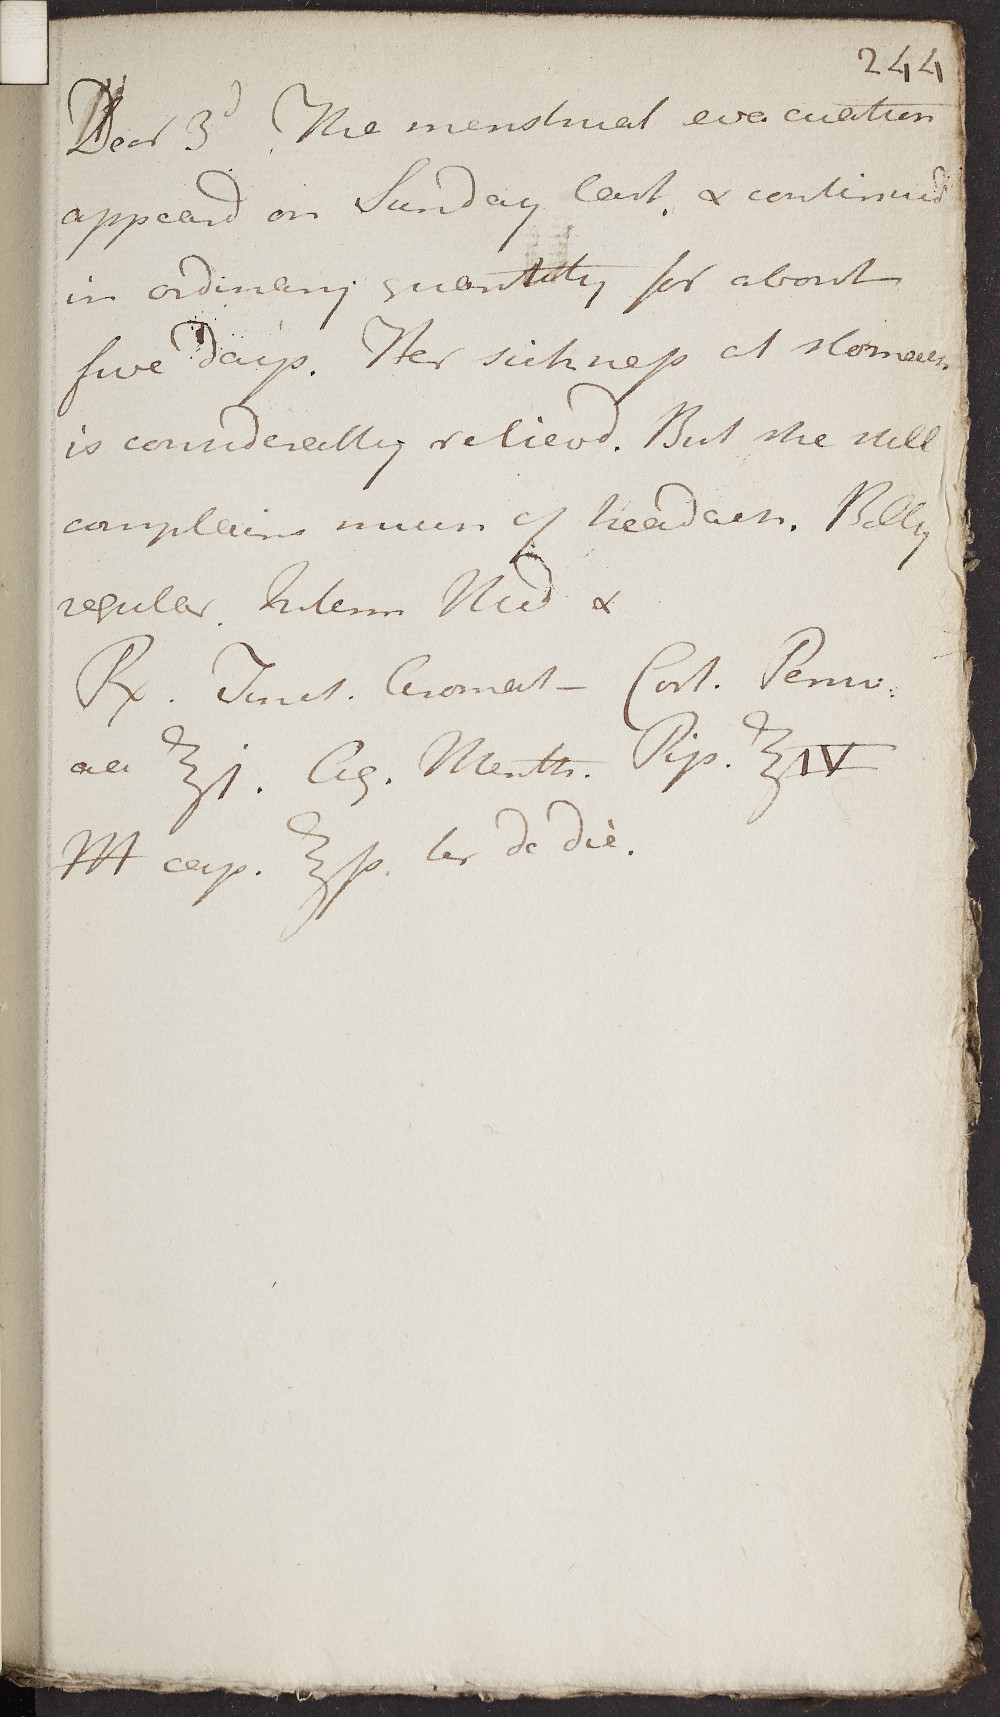 244
Decr 3d. The menstrual evacuation
appeard on Sunday last. & continued
in ordinary quantity for about
five days. Her sickness at stomach
is considerably relievd. But she still
complains much of headach. Belly
regular. Interm Med &
Rx. Tinct. Aromat - Cort. Peruv.
aa ℥j. Aq. Menth. Pip. ℥IV
M cap. ℥ß. ter de die.